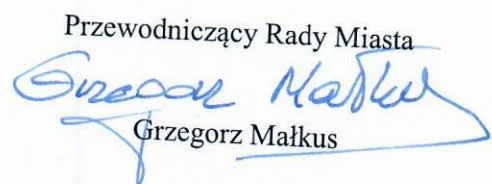 Przewodniczący Rady Miasta
Grzegorz Małkus
Grzegorz Małkus